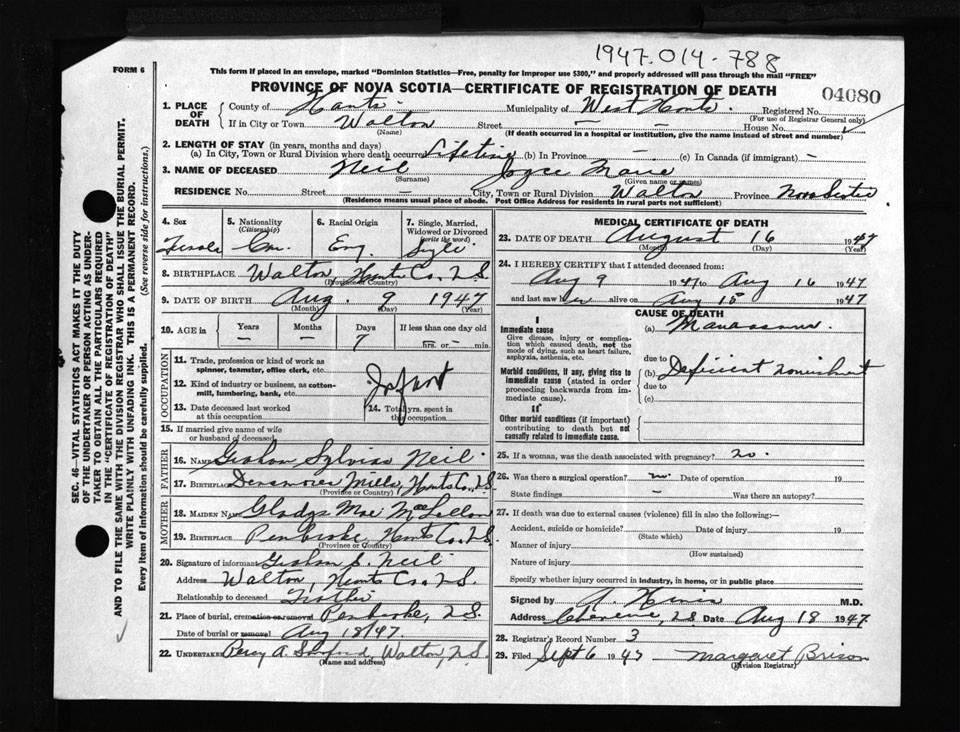 1947-014-788
FORM 6
This form if placed in an envelope, marked "Dominion Statistics—Free, penalty for improper use $300," and properly addressed will pass through the mail "FREE"
PROVINCE OF NOVA SCOTIA—CERTIFICATE OF REGISTRATION OF DEATH
04080
1. PLACE OF DEATH
County of Hants Municipality of West Hants Registered No.
(For use of Registrar General only)
If in City or Town Walton Street — House No. —
(Name) (If death occurred in a hospital or institution, give the name instead of street and number)
2. LENGTH OF STAY (in years, months and days)
(a) In City, Town or Rural Division where death occurred Lifetime (b) In Province — (c) In Canada (if immigrant) —
3. NAME OF DECEASED Neil Joyce Marie
(Surname) (Given name or names)
RESIDENCE No. Street — City, Town or Rural Division Walton Province Nova Scotia
(Residence means usual place of abode. Post Office Address for residents in rural parts not sufficient)
SEC. 46—VITAL STATISTICS ACT MAKES IT THE DUTY
OF THE UNDERTAKER OR PERSON ACTING AS UNDER-
TAKER TO OBTAIN ALL THE PARTICULARS REQUIRED
IN THE "CERTIFICATE OF REGISTRATION OF DEATH"
AND TO FILE THE SAME WITH THE DIVISION REGISTRAR WHO SHALL ISSUE THE BURIAL PERMIT.
WRITE PLAINLY WITH UNFADING INK. THIS IS A PERMANENT RECORD.
Every item of information should be carefully supplied. (See reverse side for instructions.)
4. Sex
Female
5. Nationality
(Citizenship)
Can.
6. Racial Origin
Eng.
7. Single, Married,
Widowed or Divorced
(write the word)
Single
8. BIRTHPLACE Walton, Hants Co., N.S.
(Province or Country)
9. DATE OF BIRTH Aug. 9 1947
(Month) (Day) (Year)
10. AGE in
Years Months Days If less than one day old
— — 7 hrs. or — min.
OCCUPATION
11. Trade, profession or kind of work as
spinner, teamster, office clerk, etc.
12. Kind of industry or business, as cotton-
mill, lumbering, bank, etc.
Infant
13. Date deceased last worked
at this occupation
14. Total yrs. spent in
this occupation
15. If married give name of wife
or husband of deceased
FATHER
16. Name Neil
17. Birthplace Densmores Mills, Hants Co., N.S.
(Province or Country)
MOTHER
18. Maiden Name Gladys Mae
19. Birthplace Pembroke, Hants Co., N.S.
(Province or Country)
20. Signature of informant Neil
Address Walton, Hants Co., N.S.
Relationship to deceased Father
21. Place of burial, cremation or removal Pembroke, N.S.
Date of burial or removal Aug 18/47.
22. UNDERTAKER Percy A. Walton, N.S.
(Name and address)
MEDICAL CERTIFICATE OF DEATH
23. DATE OF DEATH August 16 1947
(Month) (Day) (Year)
24. I HEREBY CERTIFY that I attended deceased from:
Aug 9 1947 to Aug 16 1947
and last saw her alive on Aug 15 1947
CAUSE OF DEATH
I
Immediate cause
Give disease, injury or complica-
tion which caused death, not the
mode of dying, such as heart failure,
asphyxia, asthenia, etc.
(a) Marasmus
due to
Morbid conditions, if any, giving rise to
immediate cause (stated in order
proceeding backwards from im-
mediate cause).
(b) Deficient nourishment
due to
(c)
II
Other morbid conditions (if important)
contributing to death but not
causally related to immediate cause.
25. If a woman, was the death associated with pregnancy? no.
26. Was there a surgical operation? no Date of operation 19
State findings — Was there an autopsy?
27. If death was due to external causes (violence) fill in also the following:—
Accident, suicide or homicide? Date of injury 19
(State which)
Manner of injury
(How sustained)
Nature of injury
Specify whether injury occurred in industry, in home, or in public place
Signed by M.D.
Address Cheverie, N.S. Date Aug 18 1947
28. Registrar's Record Number 3
29. Filed Sept 6 1947 Margaret Brison
(Division Registrar)